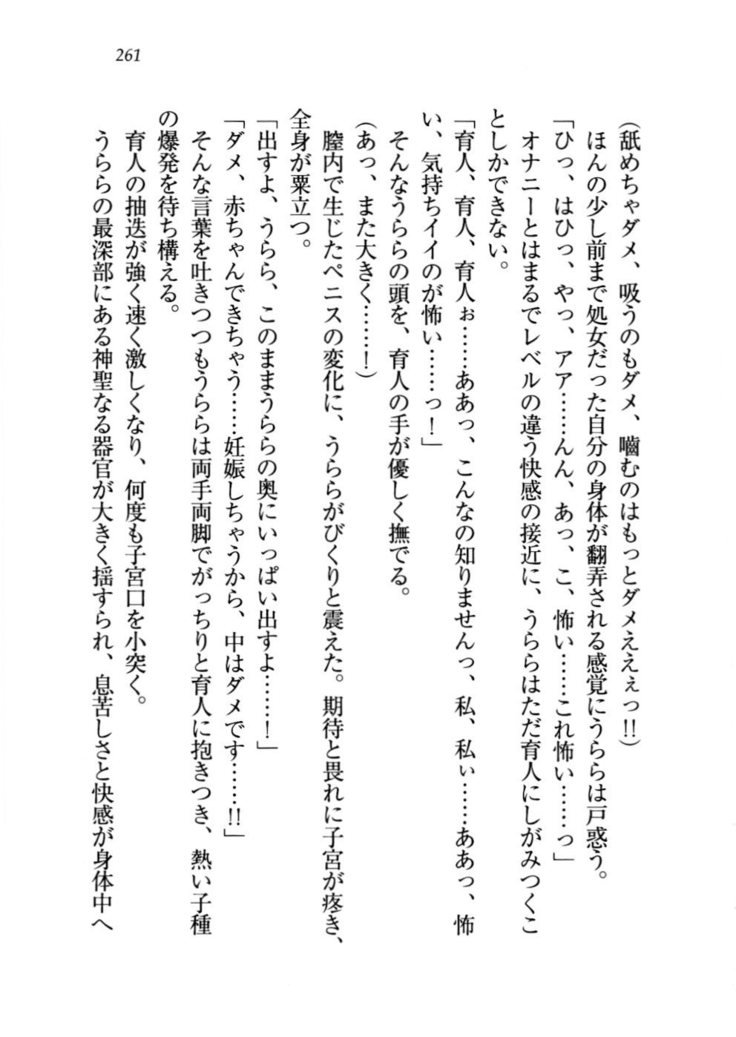 261
(舐めちゃダメ、吸うのもダメ、嚙むのはもっとダメええぇっ!!)
ほんの少し前まで処女だった自分の身体が翻弄される感覚にうららは戸惑う。
「ひっ、はひっ、やっ、アア……んん、あっ、こ、怖い……これ怖い……っ」
オナニーとはまるでレベルの違う快感の接近に、うららはただ育人にしがみつくこ
としかできない。
「育人、育人、育人ぉ……ああっ、こんなの知りませんっ、私、私ぃ……ああっ、怖
い、気持ちイイのが怖い……っ!」
そんなうららの頭を、育人の手が優しく撫でる。
(あっ、また大きく……!)
膣内で生じたペニスの変化に、うららがびくりと震えた。期待と畏れに子宮が疼き、
全身が粟立つ。
「出すよ、うらら、このままうららの奥にいっぱい出すよ……!」
「ダメ、赤ちゃんできちゃう……妊娠しちゃうから、中はダメです……!!」
そんな言葉を吐きつつもうららは両手両脚でがっちりと育人に抱きつき、熱い子種
の爆発を待ち構える。
育人の抽迭が強く速く激しくなり、何度も子宮口を小突く。
うららの最深部にある神聖なる器官が大きく揺すられ、息苦しさと快感が身体中へ